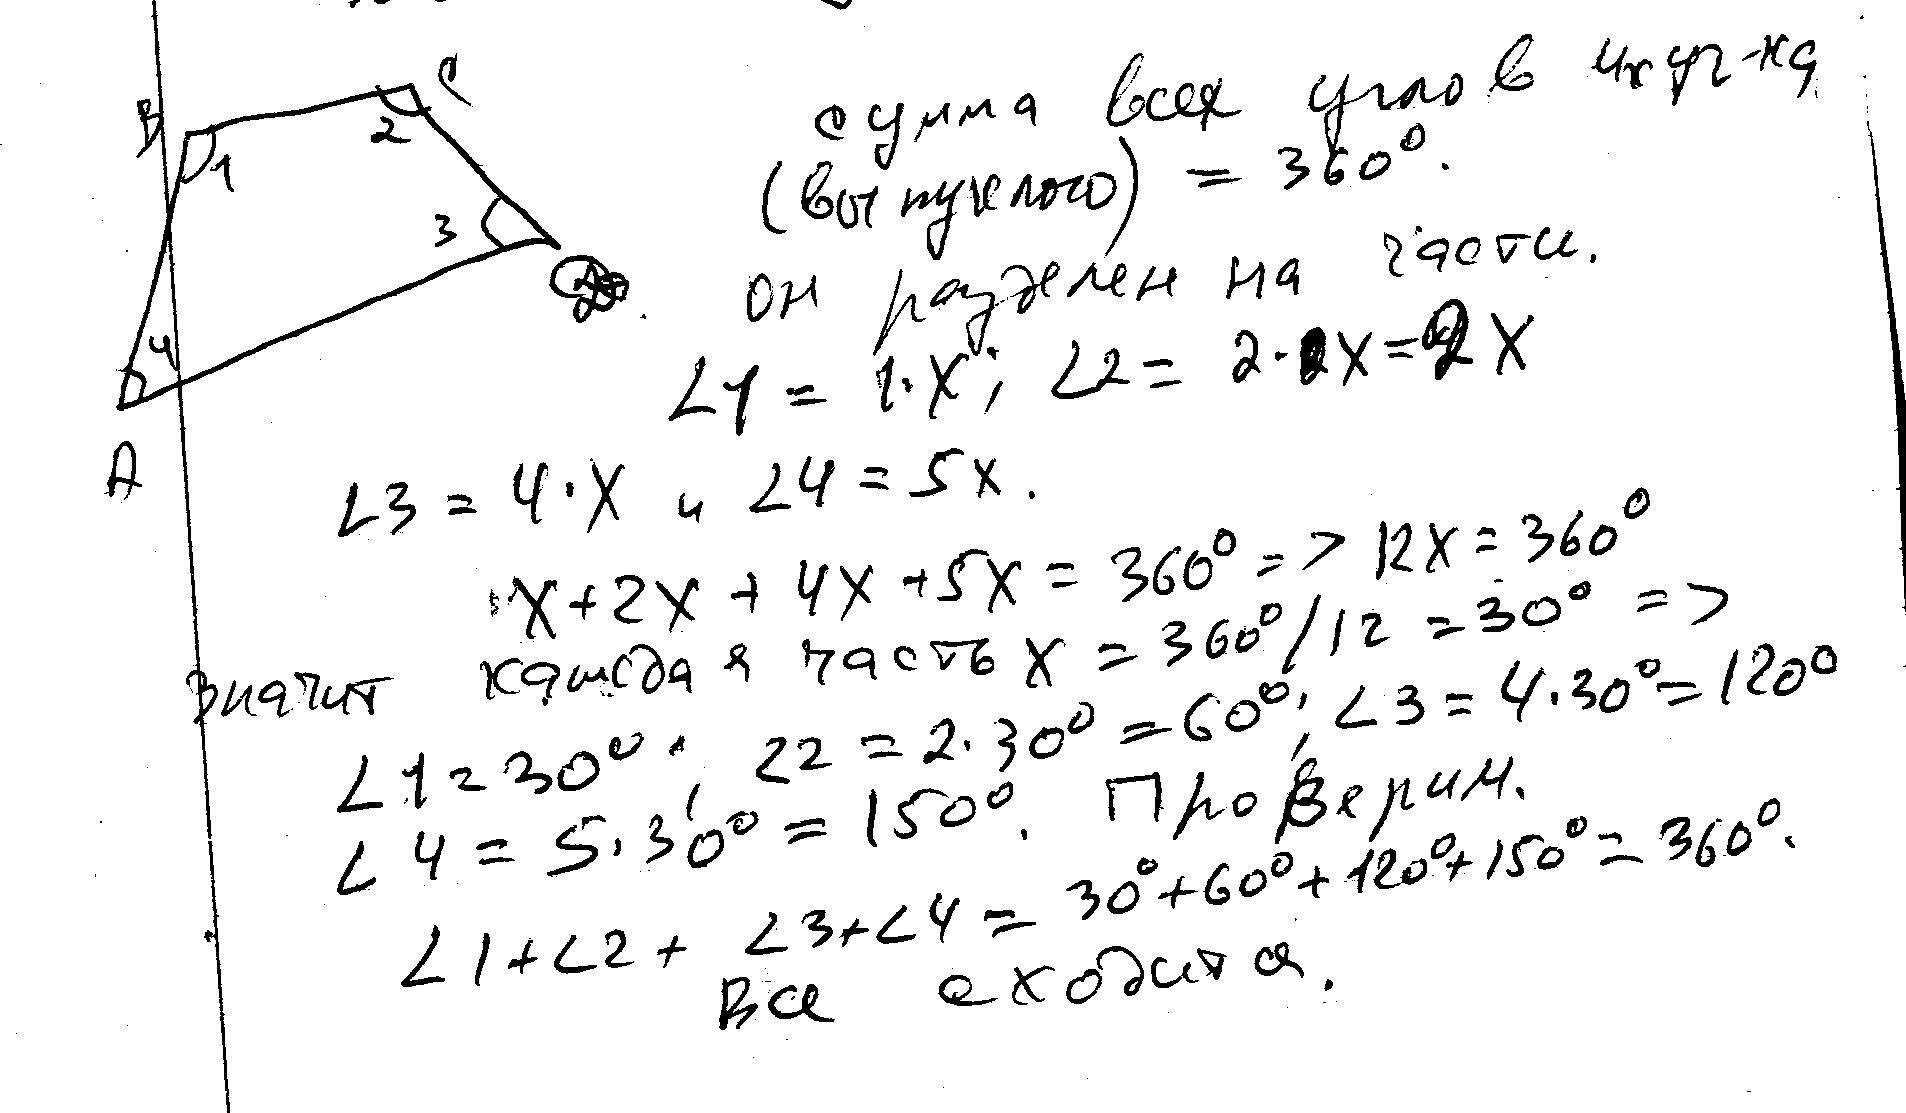 B
C
1
2
3
4
A
сумма всех углов 4х уг-ка
(выпуклого) = 360°.
он разделен на части.
∠1 = 1·X; ∠2 = 2·X = 2X
∠3 = 4·X и ∠4 = 5X.
X + 2X + 4X + 5X = 360° => 12X = 360°
Значит каждая часть X = 360°/12 = 30° =>
∠1 = 30°; ∠2 = 2·30° = 60°; ∠3 = 4·30° = 120°
∠4 = 5·30° = 150°. Проверим.
∠1 + ∠2 + ∠3 + ∠4 = 30° + 60° + 120° + 150° = 360°.
Все сходится.